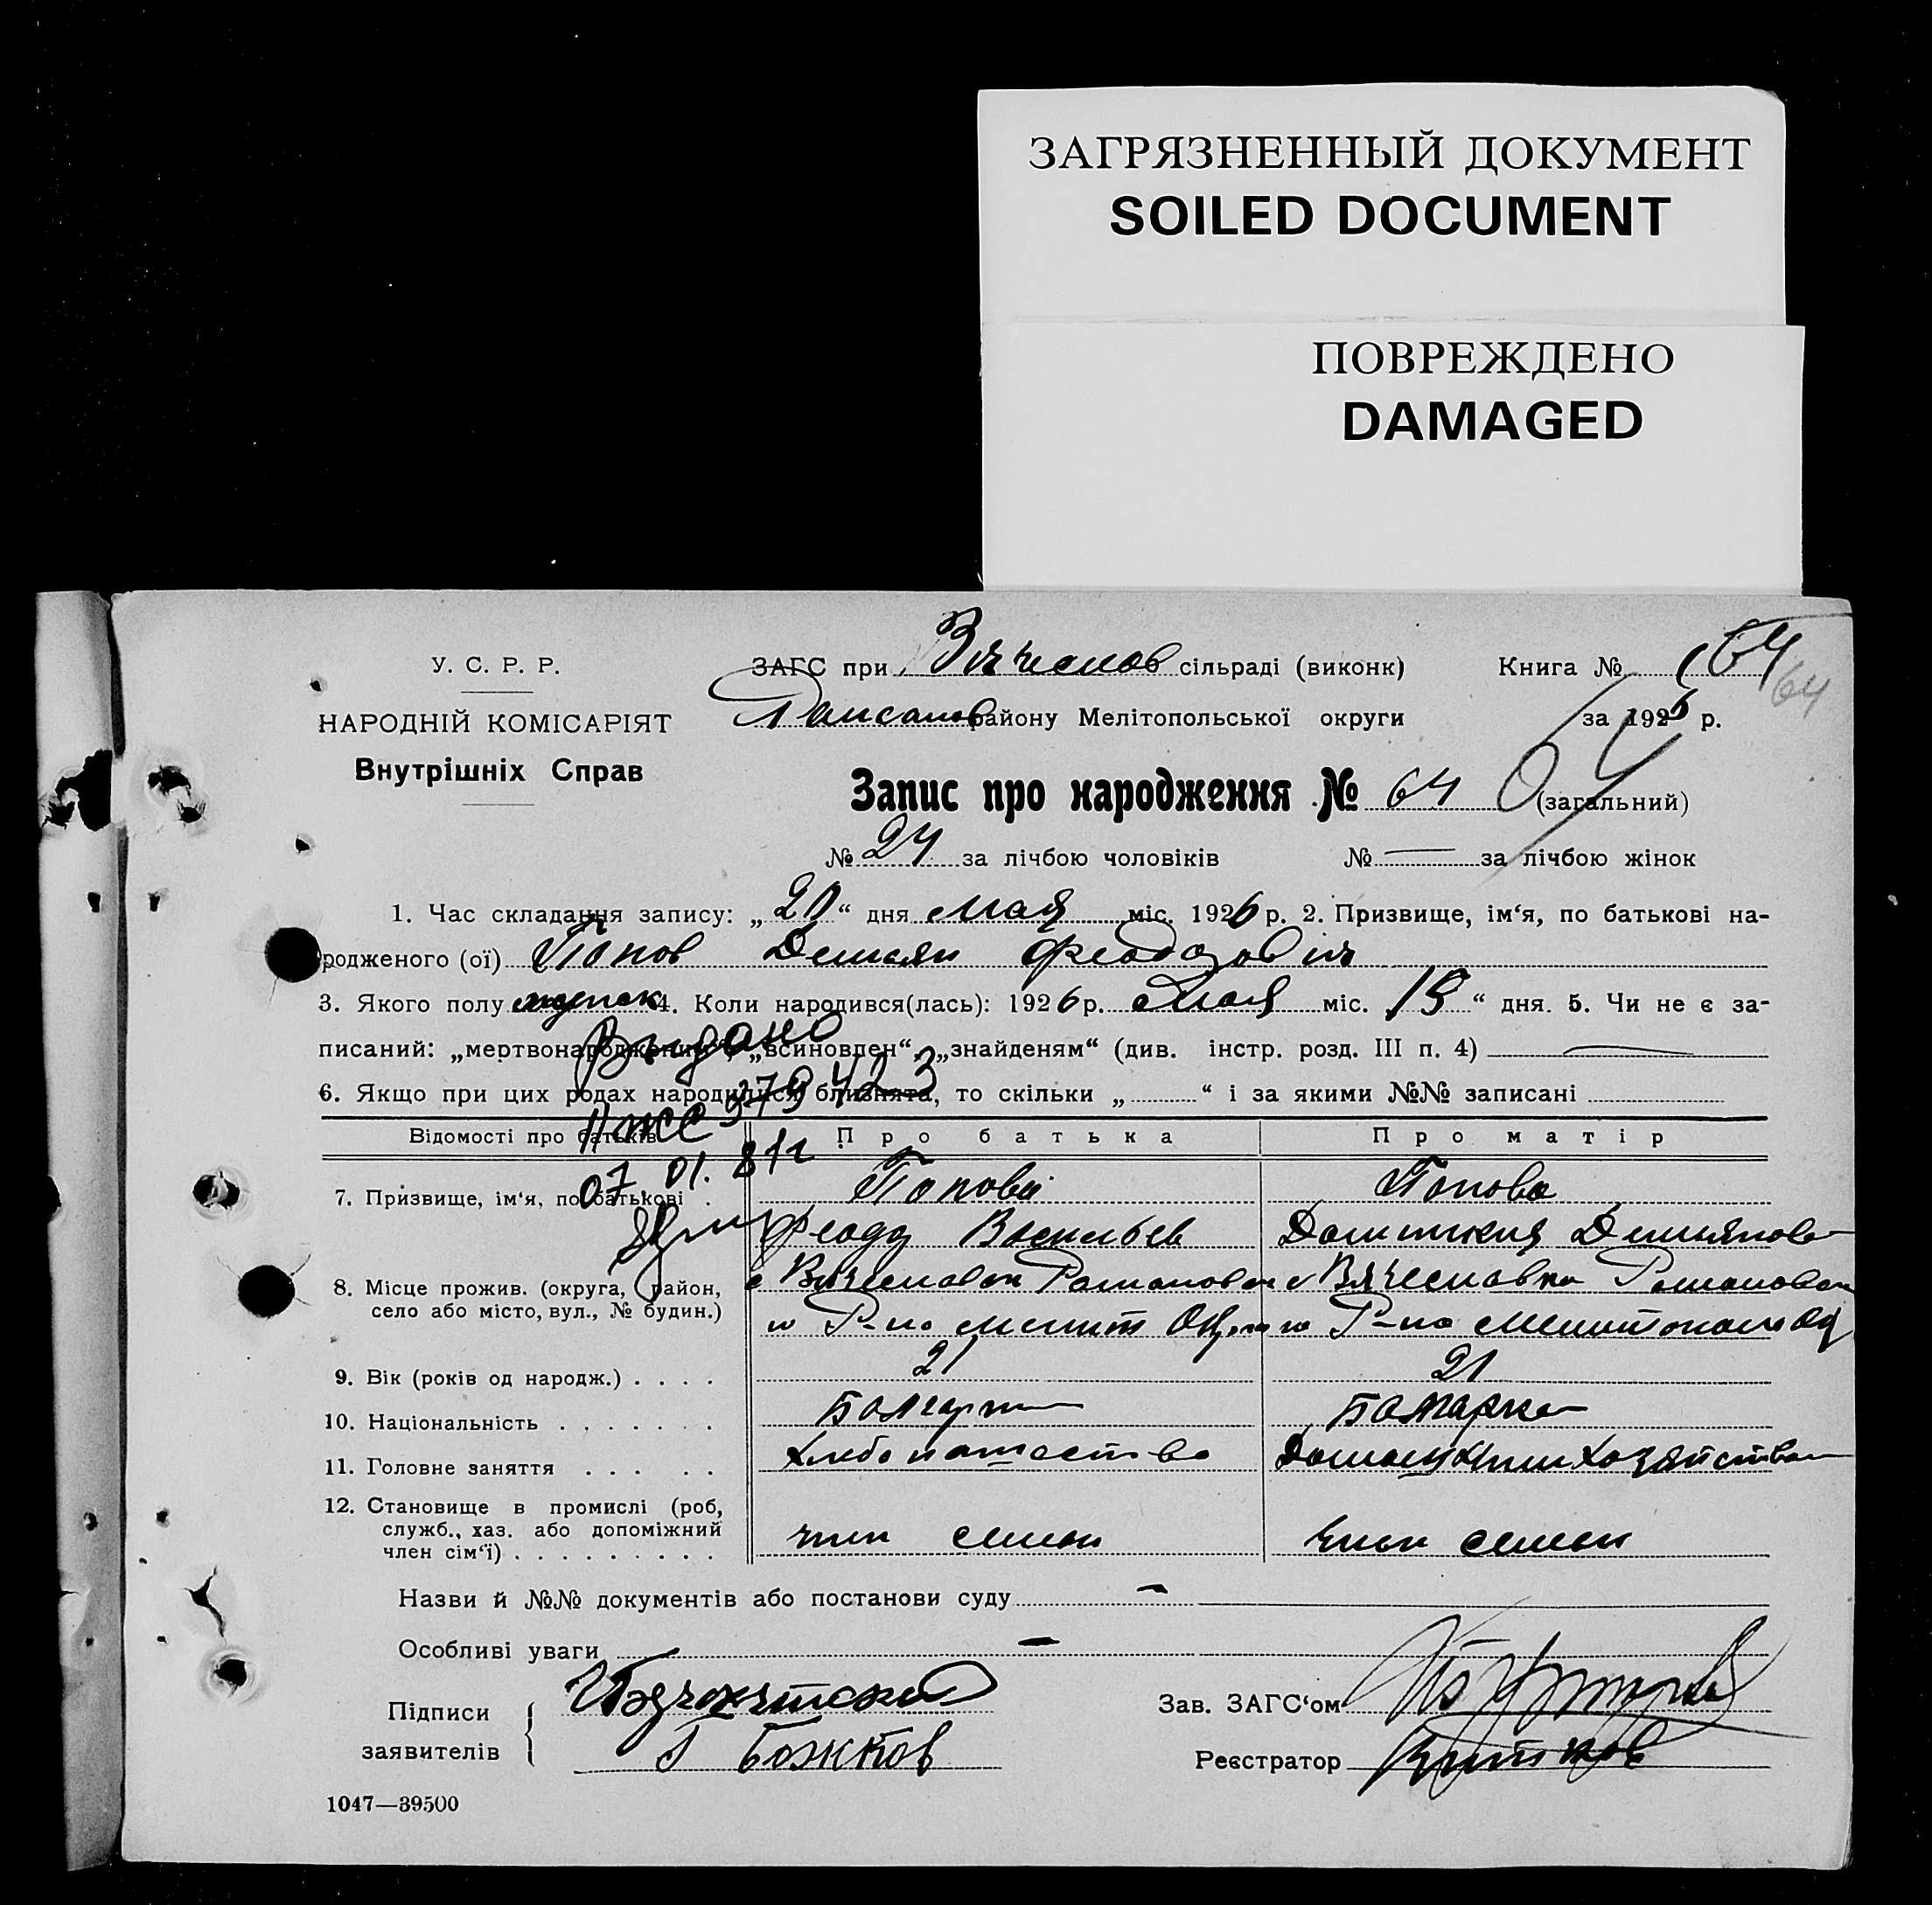 ЗАГРЯЗНЕННЫЙ ДОКУМЕНТ
SOILED DOCUMENT
ПОВРЕЖДЕНО
DAMAGED
У. С. Р. Р.
НАРОДНІЙ КОМІСАРІЯТ
Внутрішніх Справ
ЗАГС при Вячеслов сільраді (виконк) Книга № 64
64
району Мелітопольської округи за 1926 р.
Запис про народження № 64 (загальний)
64
№ 24 за лічбою чоловіків № — за лічбою жінок
1. Час складання запису: „20“ дня мая міс. 1926 р. 2. Призвище, ім‘я, по батькові на-
родженого (ої) Попов Демьян Феодозовіч
3. Якого полу 4. Коли народився(лась): 1926 р. мая міс. 15 “ дня. 5. Чи не є за-
писаний: „мертвонароджений“, „всиновлен“, „знайденям“ (див. інстр. розд. III п. 4) —
6. Якщо при цих родах народилися близнята, то скільки „ “ і за якими №№ записані
Выдано
379423
07.01.81г
Відомості про батьків Про батька Про матір
7. Призвище, ім‘я, по батькові . Попов Попова
Феодз Васильев Демьянова
8. Місце прожив. (округа, район, с Вячеславка Романовск с Вячеславка Романовск
село або місто, вул., № будин.) Р-на Мелит Окр Р-на Мелитопол Ок
9. Вік (років од народж.) . . . . 21 21
10. Національність . . . . . . . Болгарин Болгарка
11. Головне заняття . . . . . Хлебопашество Домашним Хозяйством
12. Становище в промислі (роб,
служб., хаз. або допоміжний
член сім‘ї) . . . . . . . . . член семьи член семьи
Назви й №№ документів або постанови суду —
Особливі уваги —
Підписи
заявителів Г Божков
Зав. ЗАГС‘ом
Реєстратор
1047—39500